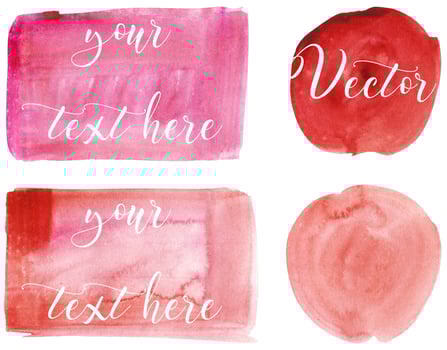 your
text here
Vector
your
text here